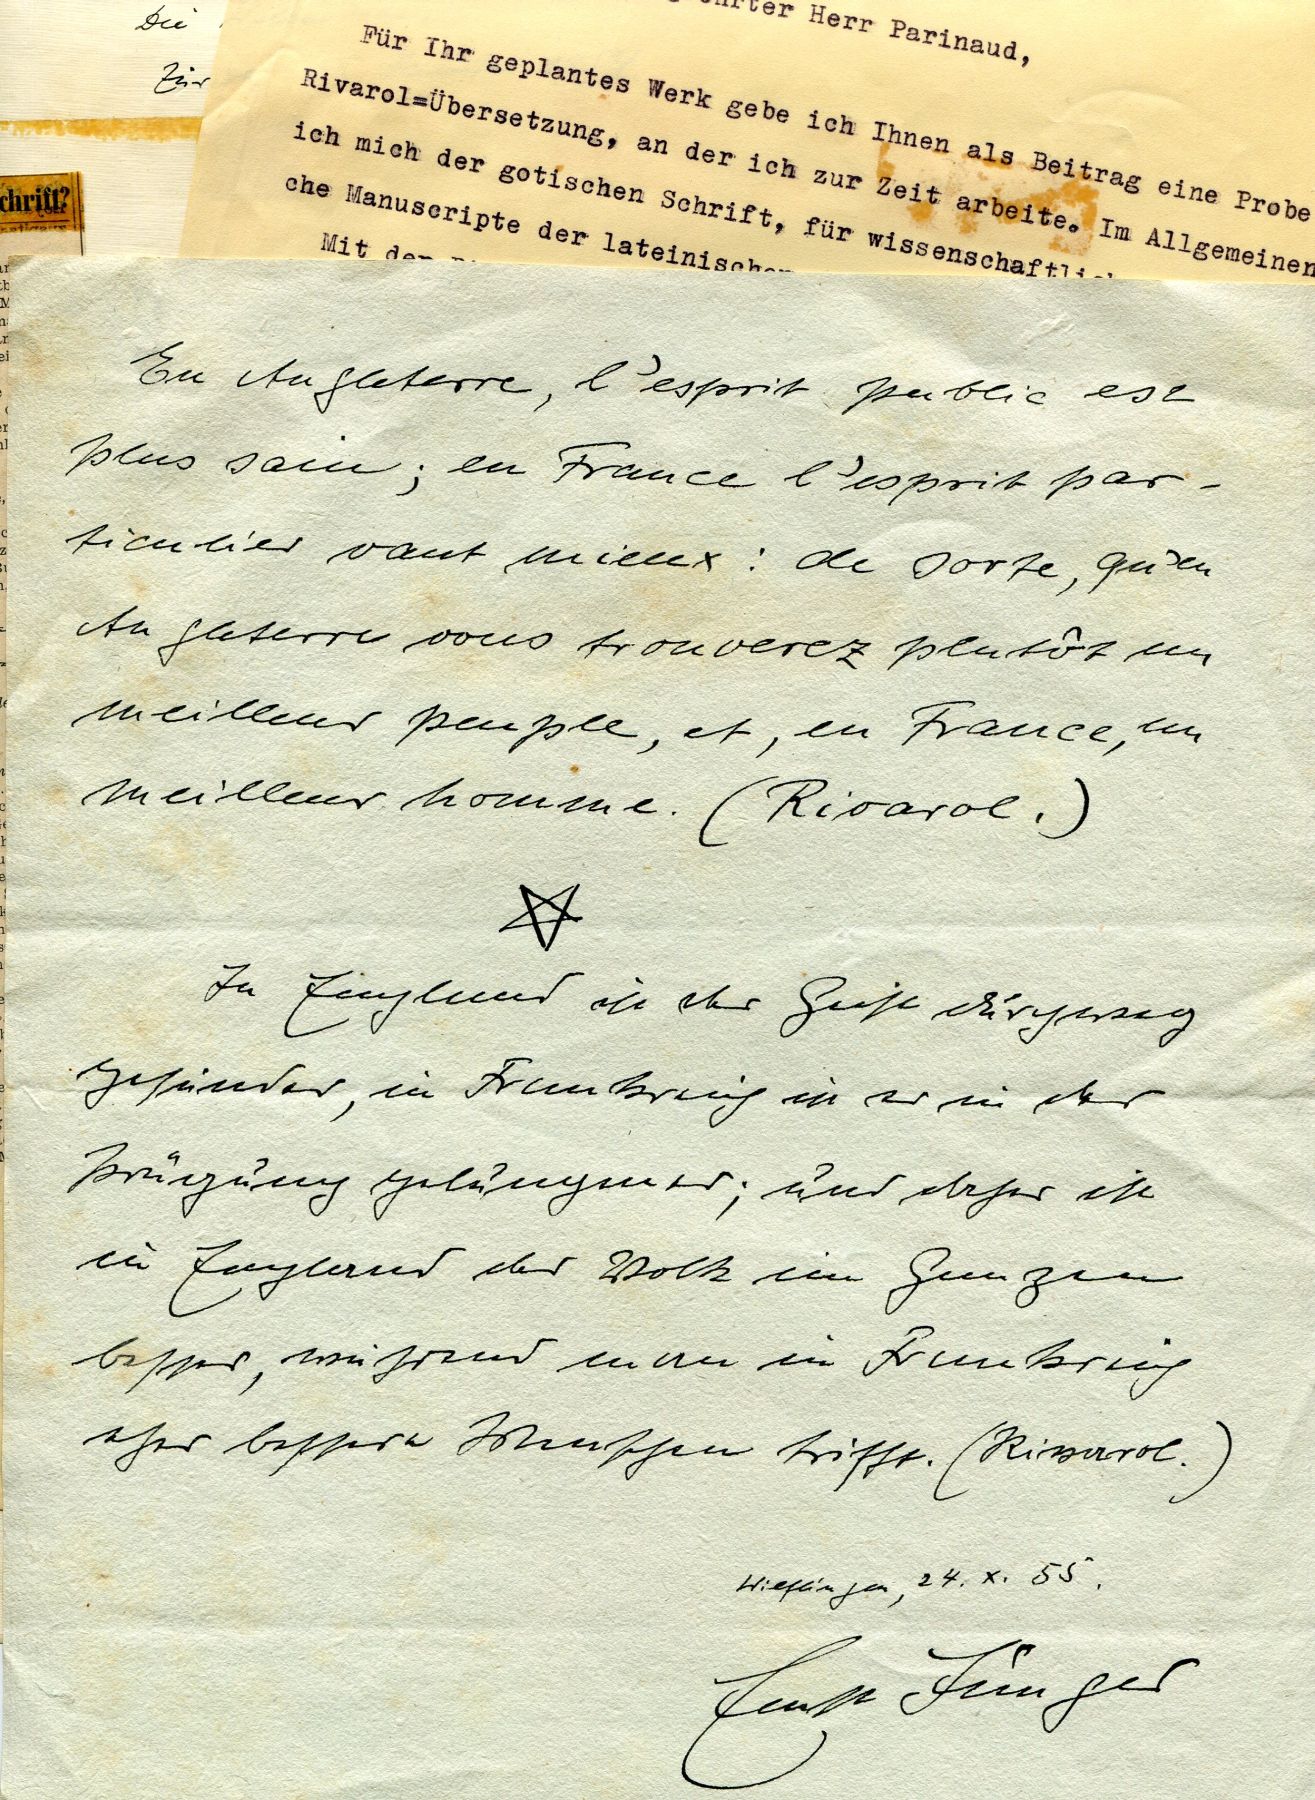 Die
Für
Herr Parinaud,
Für Ihr geplantes Werk gebe ich Ihnen als Beitrag eine Probe
Rivarol=Übersetzung, an der ich zur Zeit arbeite. Im Allgemeinen
ich mich der gotischen Schrift, für wissenschaftlich
che Manuscripte der lateinischen
Mit den
chrift?
En Angleterre, l'esprit public est
plus sain; en France l'esprit par-
ticulier vaut mieux: de sorte, qu'en
Angleterre vous trouverez plutôt un
meilleur peuple, et, en France, un
meilleur homme. (Rivarol.)
In England ist der Geist durchweg
gesünder, in Frankreich ist er in der
Prägung gelungener; und daher ist
in England das Volk im Ganzen
besser, während man in Frankreich
eher bessere Menschen trifft. (Rivarol.)
Wilflingen, 24. X. 55.
Ernst Jünger